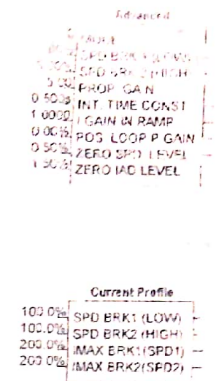 Advanced
SPD BRK1 (LOW)
SPD BRK2 (HIGH)
PROP. GAIN
0.500s INT. TIME CONST
1.0000 I GAIN IN RAMP
0.00% POS. LOOP P GAIN
0.50% ZERO SPD. LEVEL
1.50% ZERO IAD LEVEL
Current Profile
100.0% SPD BRK1 (LOW)
100.0% SPD BRK2 (HIGH)
200.0% IMAX BRK1(SPD1)
200.0% IMAX BRK2(SPD2)